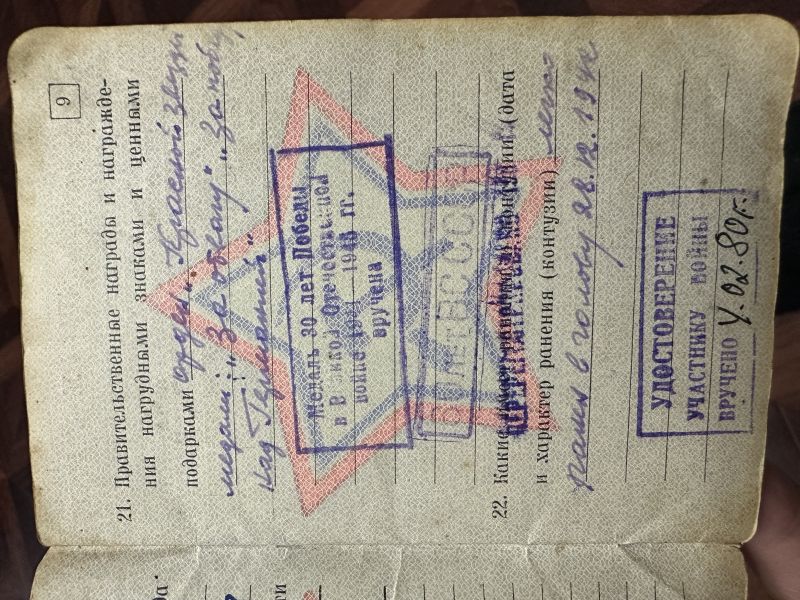 9
21. Правительственные награды и награжде-
ния нагрудными знаками и ценными
подарками орден „Красной звезды
медали: „За отвагу" „За победу
над Германией"
Медаль 30 лет Победы
в Великой Отечественной
войне 1941 1945 гг.
вручена
22. Какие имеет ранения и контузии (дата
и характер ранения (контузии) легко
ранен в голову 28.12.194
УДОСТОВЕРЕНИЕ
УЧАСТНИКУ ВОЙНЫ
ВРУЧЕНО 4.02.80г.